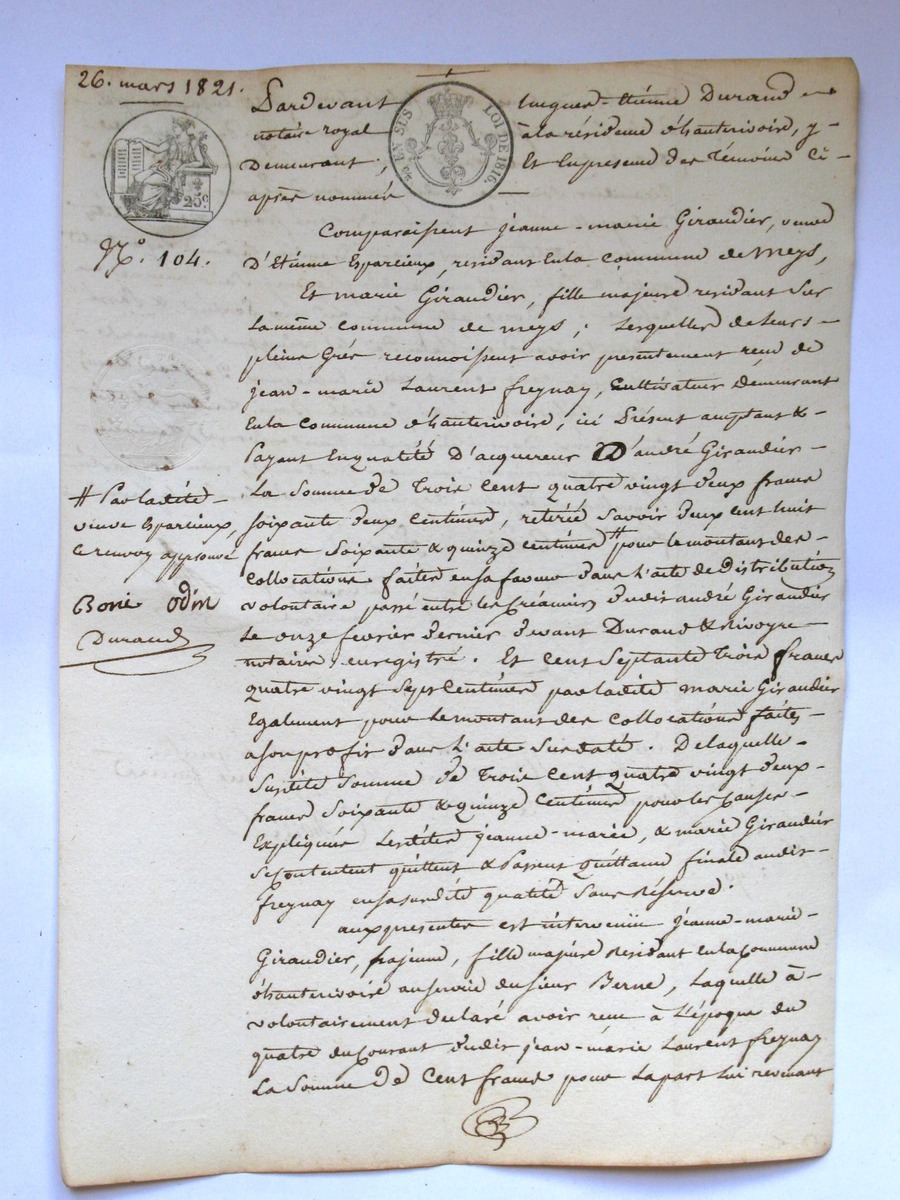 26. mars 1821.
Pardevant hugues-étienne Durand
notaire royal à la résidence d'hauterivoire, y
Demeurant, Et En presence des Témoins ci-
après nommés
EN SUS
LOI DE 1816.
25c
N.º 104.
Comparaissent jeanne-marie Giraudier, veuve
D'Etienne Esparcieux, residant En la Commune de Meys,
Et marie Giraudier, fille majeure residant sur
La même Commune de meys, Lesquelles de Leurs-
pleins Grés reconnoissent avoir presentement reçu de
jean-marie Laurent freynay, Cultivateur Demeurant
En la Commune d'hauterivoire, ici Présent acceptant &
Payant En qualité D'acquereur D'andré Giraudier-
La Somme de Trois Cent quatre vingt deux francs
soixante deux Centimes, retirée savoir deux cent huit
francs Soixante & quinze centimes # pour le montant des-
collocations faites en sa faveur dans L'acte de Distribution
volontaire passé entre les Créanciers dudit andré Giraudier
Le onze fevrier dernier devant Durand & Rivoyre
notaires, enregistré. Et cent Septante Trois francs
quatre vingt Sept Centimes par ladite marie Giraudier
Egalement pour Le montant des collocations faites-
a son profit dans L'acte Sus daté. De laquelle-
Susdite Somme de Trois Cent quatre vingt deux-
francs Soixante & quinze Centimes pour les Causes-
Expliquées Lesdites jeanne-marie, & marie Giraudier
Se contentent quittent & Passent Quittance finale audit-
freynay en sa susdite qualité Sans Réserve.
# Par ladite-
veuve Esparcieux,
le renvoy approuvé
Borie Odin
Durand
aux presentes est intervenüe jeanne-marie-
Giraudier, fille majeure Residant en la Commune
d'hauterivoire au service du sieur Berne, Laquelle à-
volontairement declaré avoir reçu à L'époque du
quatre du Courant dudit jean-marie Laurent freynay
La Somme de Cent francs pour La part Lui revenant